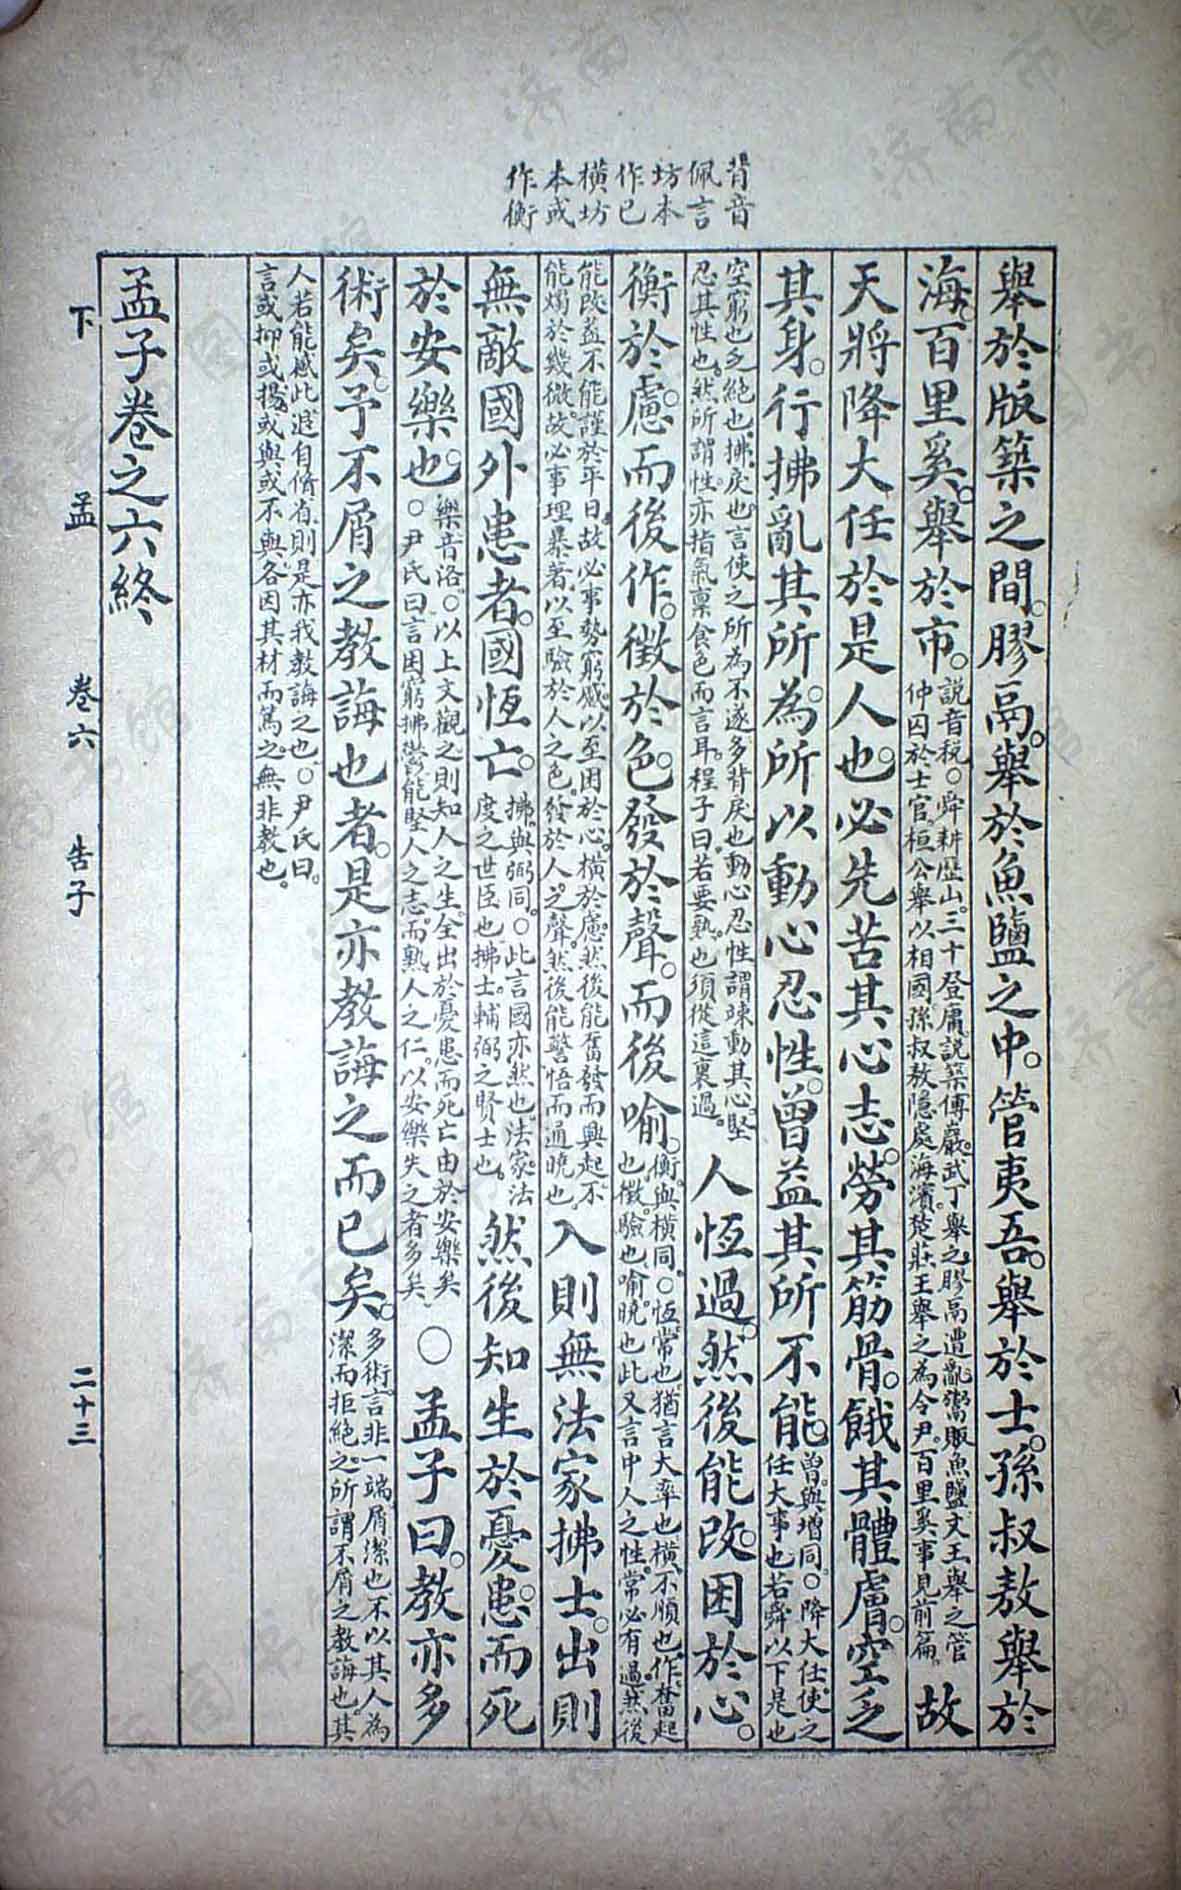 背音
佩言
坊本
作已
橫坊
本或
作衡
舉於版築之間。膠鬲。舉於魚鹽之中。管夷吾。舉於士。孫叔敖舉於
海。百里奚。舉於市。
說音稅。○舜耕歷山。三十登庸。說築傅巖。武丁舉之。膠鬲遭亂。鬻販魚鹽。文王舉之。管
仲囚於士官。桓公舉以相國。孫叔敖隱處海濱。楚莊王舉之為令尹。百里奚事見前篇。
故
天將降大任於是人也。必先苦其心志。勞其筋骨。餓其體膚。空乏
其身。行拂亂其所為。所以動心忍性。曾益其所不能。
曾。與增同。○降大任。使之
任大事也。若舜以下是也
空窮也。乏絕也。拂。戾也。言使之所為不遂多背戾也。動心忍性。謂竦動其心。堅
忍其性也。然所謂性。亦指氣稟食色而言耳。程子曰。若要熟。也須從這裏過。
人恆過。然後能改。困於心。
衡於慮。而後作。徵於色。發於聲。而後喻。
衡。與橫同。○恆。常也。猶言大率也。橫。不順也。作。奮起
也。徵。驗也。喻。曉也。此又言中人之性。常必有過。然後
能改。蓋不能謹於平日。故必事勢窮蹙。以至困於心。橫於慮。然後能奮發而興起。不
能燭於幾微。故必事理暴著。以至驗於人之色。發於人之聲。然後能警悟而通曉也。
入則無法家拂士。出則
無敵國外患者。國恆亡。
拂。與弼同。○此言國亦然也。法家。法
度之世臣也。拂士。輔弼之賢士也。
然後知生於憂患。而死
於安樂也。
樂音洛。○以上文觀之。則知人之生。全出於憂患。而死亡由於安樂矣
○尹氏曰。言困窮拂鬱。能堅人之志。而熟人之仁。以安樂失之者多矣。
○孟子曰。教亦多
術矣。予不屑之教誨也者。是亦教誨之而已矣。
多術。言非一端。屑。潔也。不以其人為
潔而拒絕之。所謂不屑之教誨也。其
人若能感此。退自脩省。則是亦我教誨之也。○尹氏曰。
言或抑或揚。或與或不與。各因其材而篤之。無非教也。
孟子卷之六終
下 孟 卷六 告子 二十三